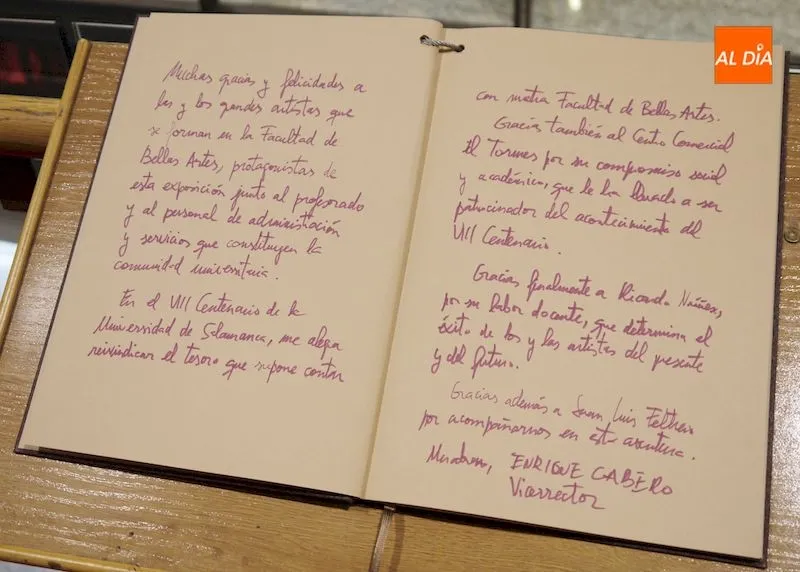 Muchas gracias y felicidades a
las y los grandes artistas que
se forman en la Facultad de
Bellas Artes, protagonistas de
esta exposición junto al profesorado
y al personal de administración
y servicios que constituyen la
comunidad universitaria.
En el VIII Centenario de la
Universidad de Salamanca, me alegra
reivindicar el tesoro que supone contar
con nuestra Facultad de Bellas Artes.
Gracias también al Centro Comercial
El Tormes por su compromiso social
y académico, que le ha llevado a ser
patrocinador del acontecimiento del
VIII Centenario.
Gracias finalmente a Ricardo Núñez,
por su labor docente, que determina el
éxito de los y las artistas del presente
y del futuro.
Gracias además a Juan Luis
por acompañarnos en esta aventura.
ENRIQUE CABERO
Vicerrector
AL DÍA